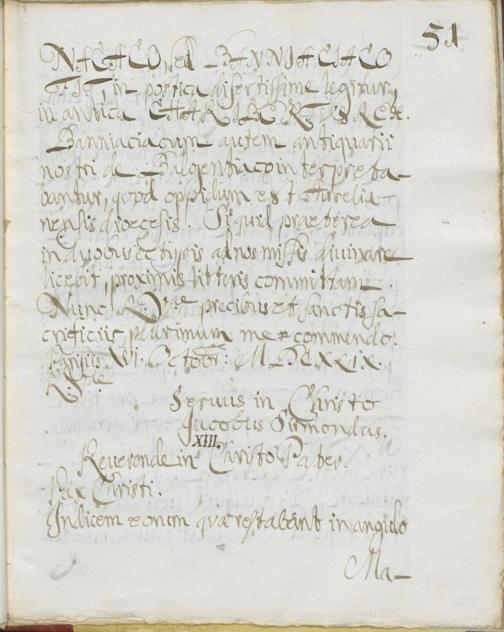 51
NACACO, ed BAVNIACIACO
FIT, in postica disertissime legitur,
in antica CHARIBERTVS REX.
Banniaciacum autem antiquarii
nostri de Balgentiaco interpreta-
bantur, quod oppidum est Aurelia-
nensis dioecesis. Siquid praeterea
in duobus ectypis ad nos missis divinare
licebit, proximis litteris committam.
Nunc RVae precibus et sanctis sa-
crificiis plurimum me commendo.
Parisiis VI. Octobr: MDCXXIX.
RVae
Servus in Christo
Jacobus Sirmondus.
XIII.
Reverende in Christo Pater.
Pax Christi.
Indicem eorum quae restabant in angulo
Ma-